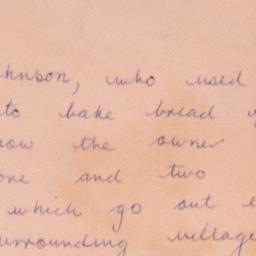 hnson, who used
to bake bread
ow the owner
one and two
which go out
urrounding village